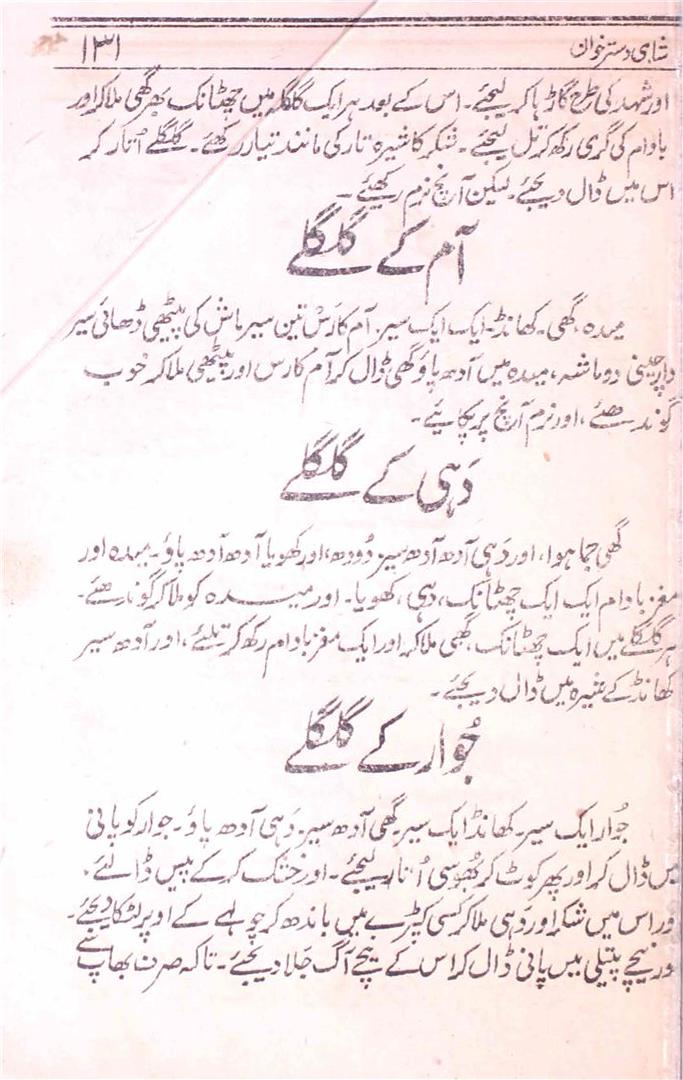 شاہی دسترخوان ۱۳۱
اور شہد کی طرح گاڑھا کر لیجئے۔ اس کے بعد ہر ایک گلگلہ میں چھٹانک بھر گھی ملا کر اور
بادام کی گری رکھ کر تل لیجئے۔ شکر کا شیرہ تار کی مانند تیار رکھئے۔ گلگلے اُتار کر
اس میں ڈال دیجئے۔ لیکن آنچ نرم رکھئے۔
آم کے گلگلے
میدہ، گھی۔ کھانڈ۔ ایک ایک سیر۔ آم کا رَس تین سیر ماش کی پیٹھی ڈھائی سیر
دارچینی دو ماشہ، میدہ میں آدھ پاؤ گھی ڈال کر آم کا رس اور پیٹھی ملا کر خوب
گوندھئے، اور نرم آنچ پر پکائیے۔
دَہی کے گلگلے
گھی جما ہوا، اور دَہی آدھ آدھ سیر دُودھ، اور کھویا آدھ آدھ پاؤ۔ میدہ اور
مغز بادام ایک ایک چھٹانک، دہی، کھویا۔ اور میدہ کو ملا کر گوندھئے۔
ہر گلگلے میں ایک چھٹانک گھی ملا کر اور ایک مغز بادام رکھ کر تلئے، اور آدھ سیر
کھانڈ کے شیرہ میں ڈال دیجئے۔
جُوار کے گلگلے
جُوار ایک سیر۔ کھانڈ ایک سیر۔ گھی آدھ سیر۔ دَہی آدھ پاؤ۔ جوار کو پانی
میں ڈال کر اور پھر کوٹ کر بھُوسی اُتار لیجئے۔ اور خشک کر کے پیس ڈالئے،
اور اس میں شکر اور دَہی ملا کر کسی کپڑے میں باندھ کر چولہے کے اوپر لٹکا دیجئے۔
اور نیچے پتیلی میں پانی ڈال کر اس کے نیچے آگ جَلا دیجئے۔ تاکہ صرف بھاپ سے